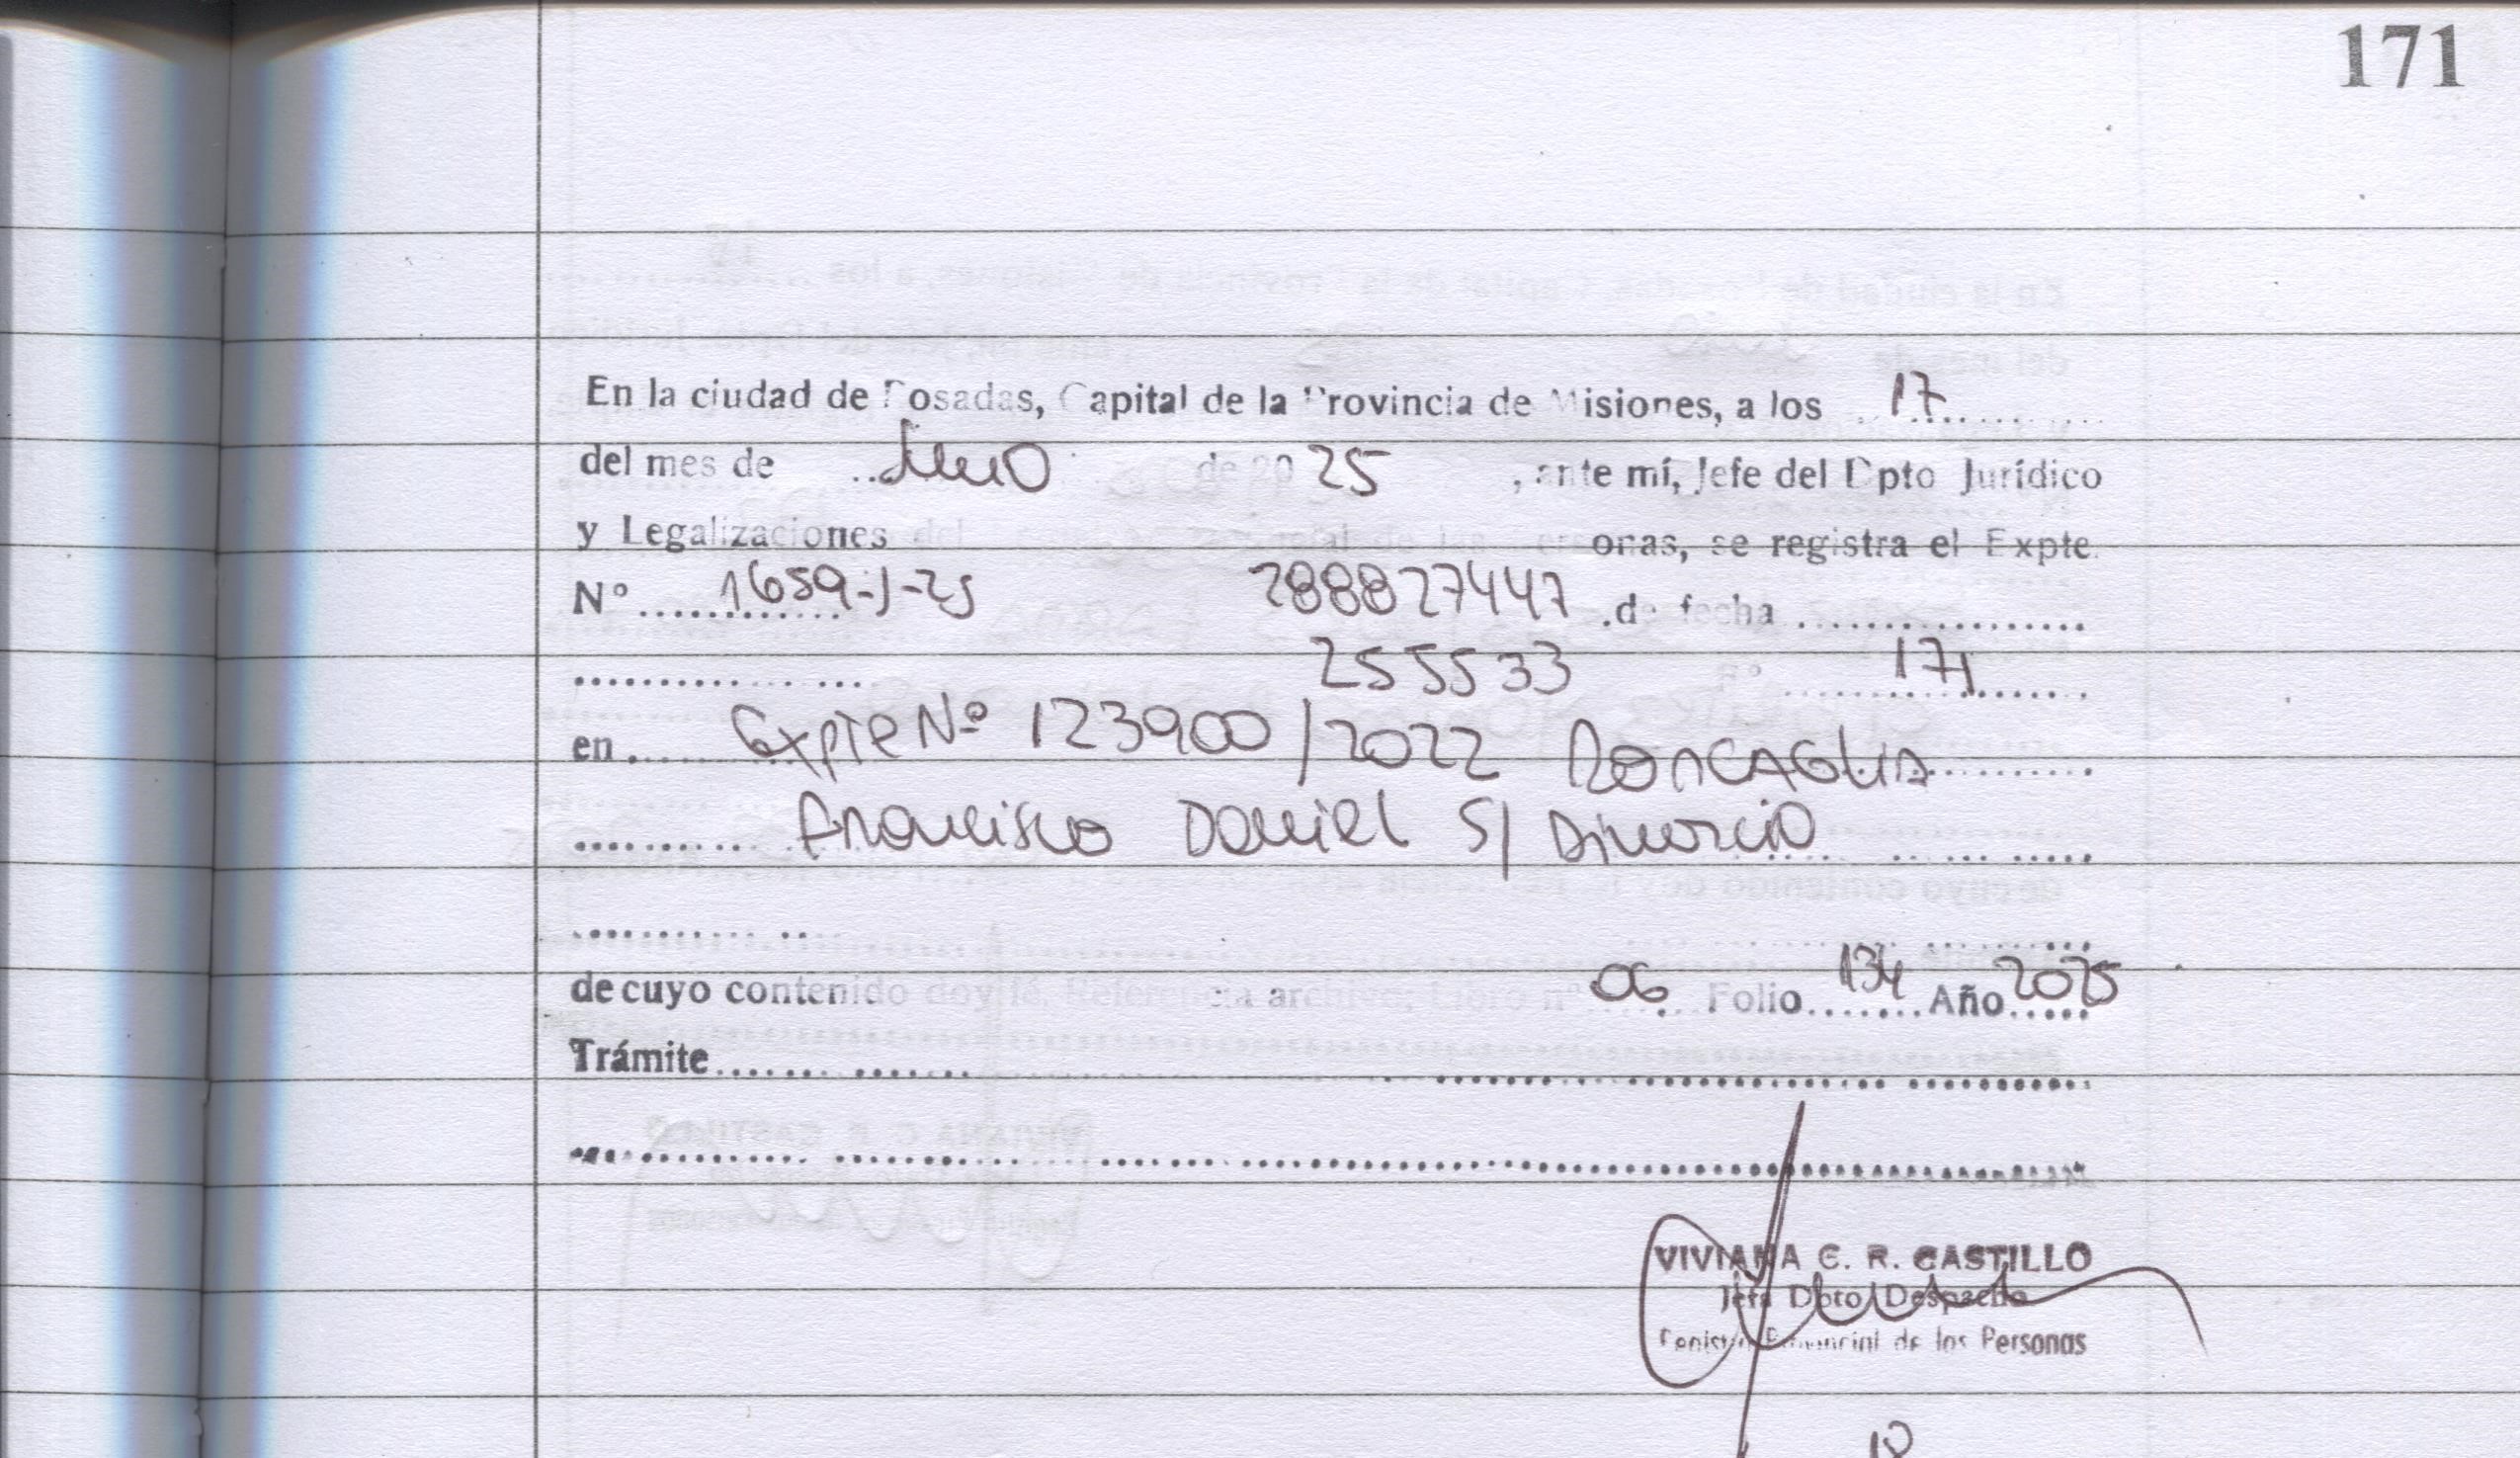 171
En la ciudad de Posadas, Capital de la Provincia de Misiones, a los 17
del mes de Junio de 20 25, ante mí, Jefe del Dpto Jurídico
y Legalizaciones del onas, se registra el Expte.
Nº 1659-J-25 288827447 de fecha
255533 171
en Expte Nº 123900/2022 RONCAGLIA
Francisco Daniel S/ Divorcio
de cuyo contenido doy fe. Referencia archivo; Libro nº 06 Folio 134 Año 2025
Trámite
VIVIANA C. R. CASTILLO
Jefa Dpto Despacho
Registro Provincial de las Personas
18